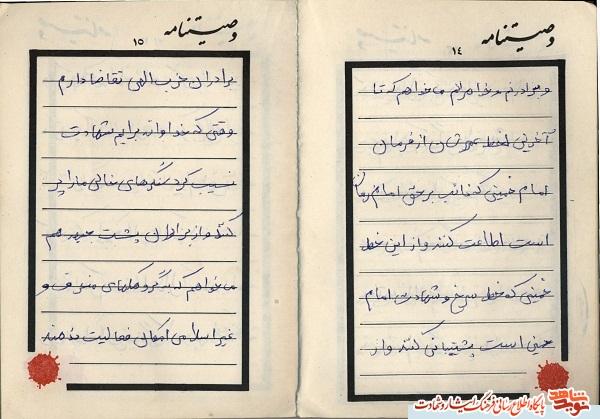 وصیتنامه
۱۴
و برادرنم و خواهرانم میخواهم که تا
آخرین لحظه عمرشان از فرمان
امام خمینی که نائب بر حق امام زمان
است اطاعت کنند و از این خط
خمینی که خط سرخ و شهادت امام
خمینی است پشتیبانی کنند و از
وصیتنامه
۱۵
برادران حزب الهی تقاضا دارم
وقتی که خداوند برایم شهادت
نسیب کرد سنگرهای خالی ما را پر
کنند و از برادران پشت جبهه هم
میخواهم که به گروهکهای منحرف و
غیر اسلامی امکان فعالیت ندهند
نوید شاهد
پایگاه اطلاع رسانی فرهنگ ایثار و شهادت